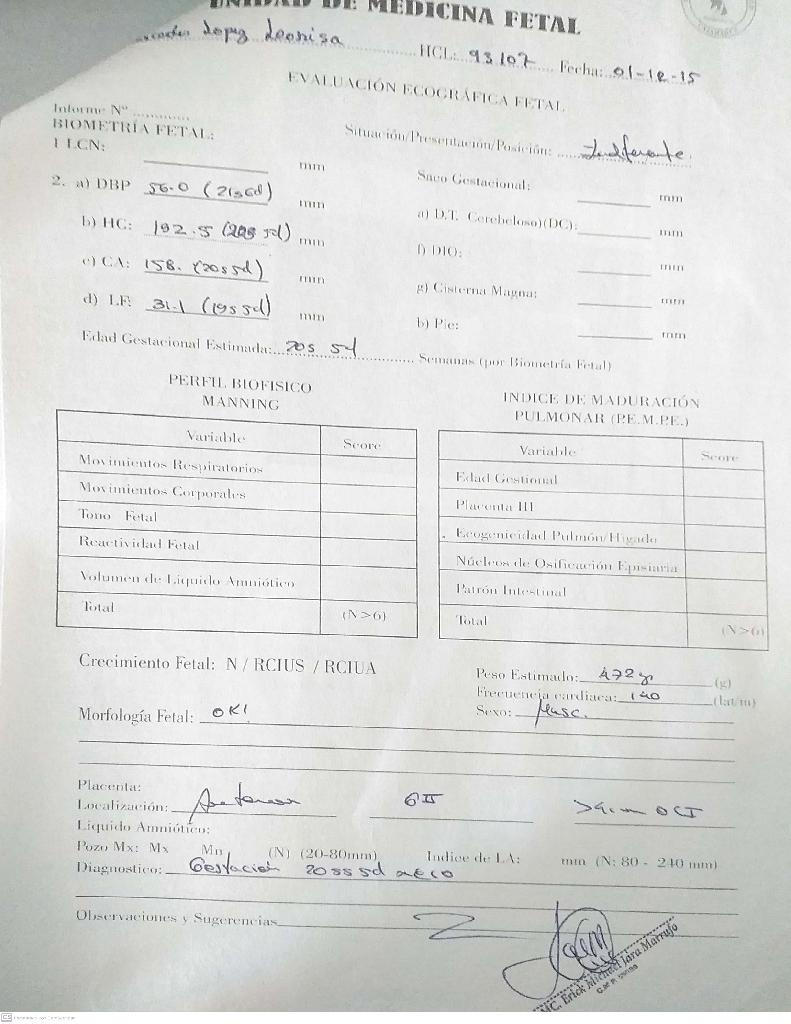 UNIDAD DE MEDICINA FETAL
Lopez Leonisa HCL: 93107 Fecha: 01-12-15
EVALUACIÓN ECOGRÁFICA FETAL
Informe N° ............
BIOMETRÍA FETAL: Situación/Presentación/Posición: Indiferente.
1 LCN: ______ mm Saco Gestacional: ______ mm
2. a) DBP 56.0 (21s6d) mm a) D.T. Cerebeloso)(DC): ______ mm
b) HC: 192.5 mm f) DIO: ______ mm
c) CA: 158. (20s5d) mm g) Cisterna Magna: ______ mm
d) LF: 31.1 (19s5d) mm b) Pie: ______ mm
Edad Gestacional Estimada: 20s 5d Semanas (por Biometría Fetal)
PERFIL BIOFISICO
MANNING
Variable Score
Movimientos Respiratorios
Movimientos Corporales
Tono Fetal
Reactividad Fetal
Volumen de Liquido Amniótico
Total (N>6)
INDICE DE MADURACIÓN
PULMONAR (P.E.M.P.E.)
Variable Score
Edad Gestional
Placenta III
Ecogenicidad Pulmón/Higado
Núcleos de Osificación Episiaria
Patrón Intestinal
Total (N>6)
Crecimiento Fetal: N / RCIUS / RCIUA
Peso Estimado: 472gr (g)
Frecuencia cardiaca: 140 (lat/m)
Sexo: Masc.
Morfología Fetal: OK!
Placenta:
Localización: Anterior GII OCI
Liquido Amniótico:
Pozo Mx: Mx Mn (N) (20-80mm) Indice de LA: mm (N: 80 - 240 mm)
Diagnostico: Gestación 20ss 5d
Observaciones y Sugerencias
MC. Erick Michael Jara Marrufo